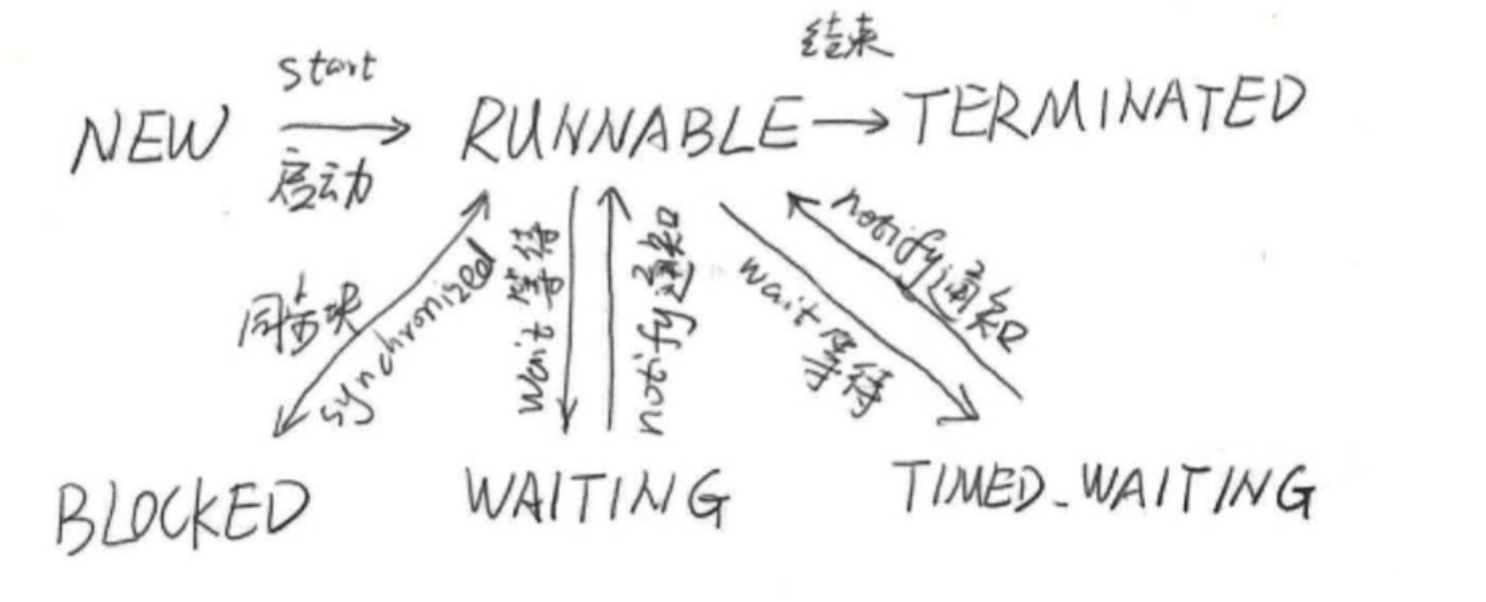 结束
start
NEW → RUNNABLE → TERMINATED
启动
同步块
synchronized
wait 等待
notify 通知
wait 等待
notify 通知
BLOCKED WAITING TIMED_WAITING